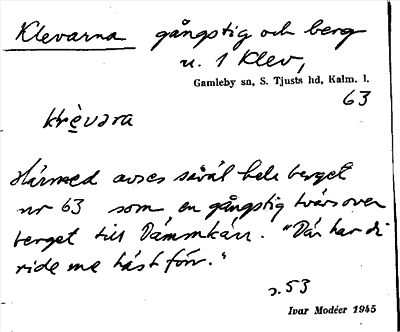 Klevarna gångstig och berg
u. 1 Klev,
Gamleby sn, S. Tjusts hd, Kalm. l.
63
klèvara
Härmed avses såväl hela berget
nr 63 som en gångstig tvärs över
berget till Dammkärr. "Där har di
ride me häst förr."
s. 53
Ivar Modéer 1945